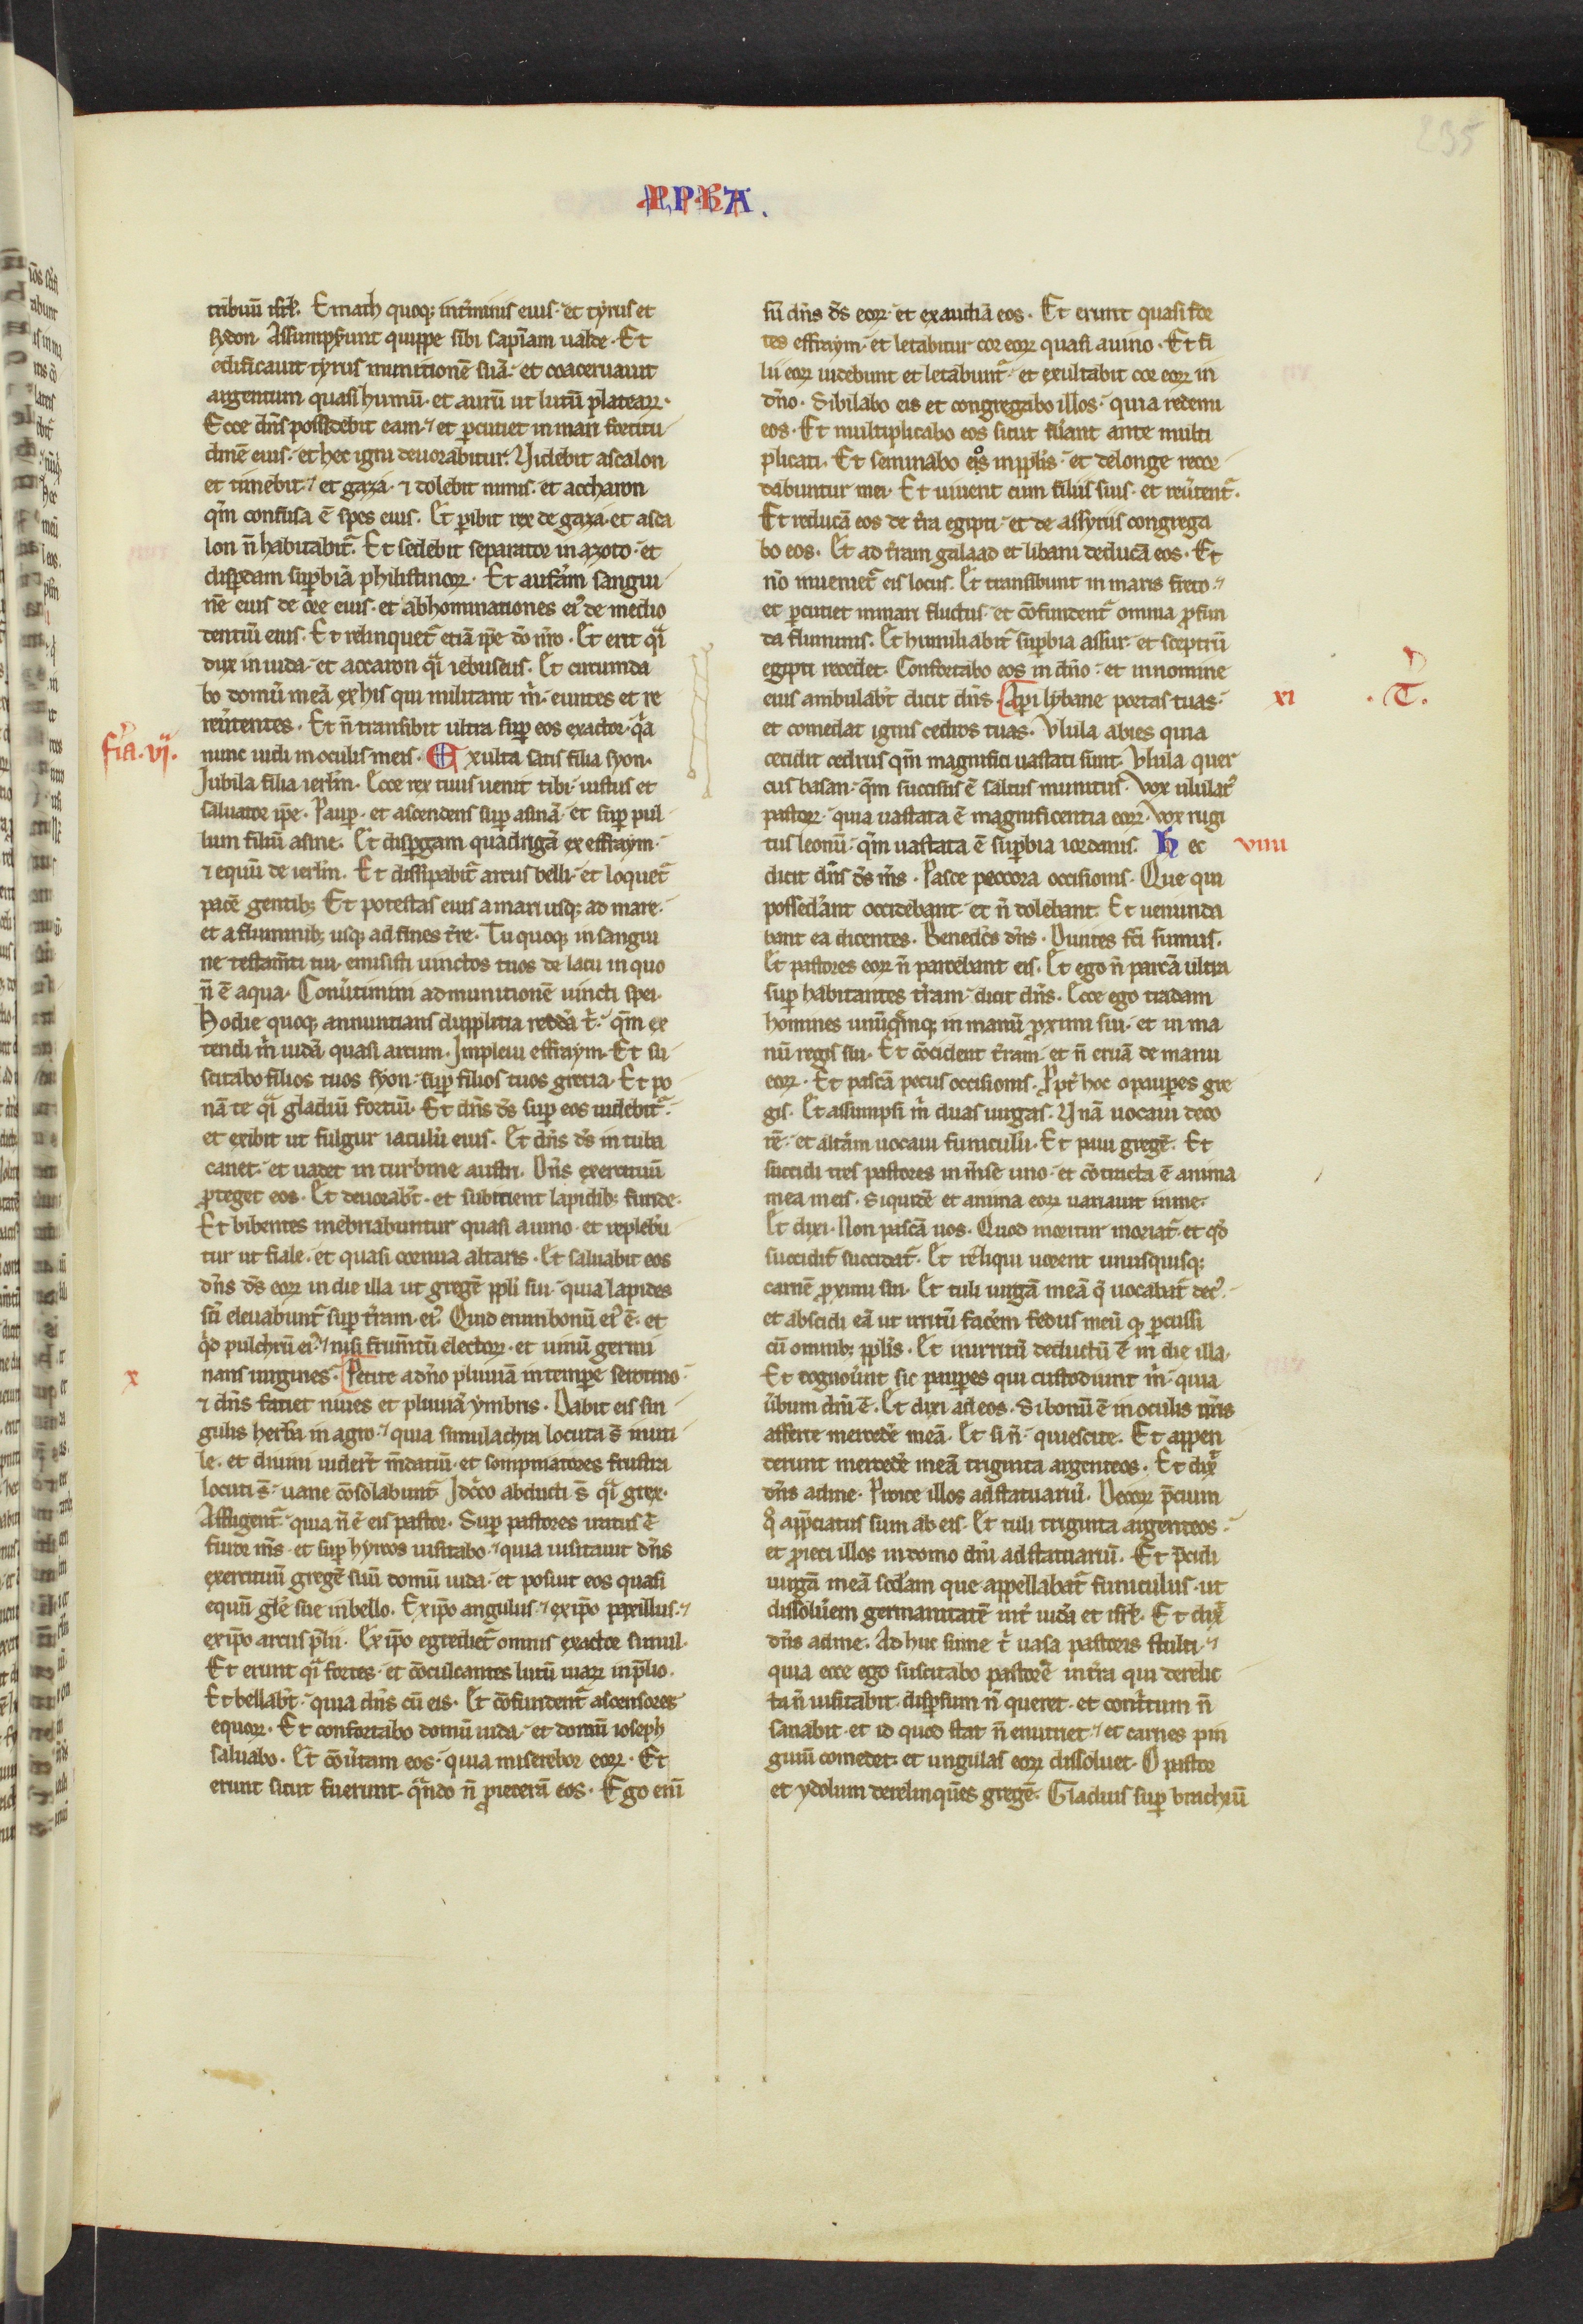 235
PPHA.
tribuū isrł. Emath quoq; in t̓minis eius. et tyrus et
sydon. Assumpserunt quippe sibi sapīam ualde. Et
edificauit tyrus munitionē suā. et coaceruauit
argentum quasi humū. et aurū ut lutū plateaꝝ.
Ecce dn̄s possidebit eam. et ꝑcutiet in mari fortitu
dinē eius. et hec igni deuorabitur. Videbit ascalon
et timebit. et gaza. ⁊ dolebit nimis. et accharon
qm̄ confusa ē spes eius. Et ꝑibit rex de gaza. et asca
lon n̄ habitabit᷑. Et sedebit separator in azoto. et
disꝑdam suꝑbiā philistinoꝝ. Et auferam sangui
nē eius de ore eius. et abhominationes ei᷒ de medio
dentiū eius. Et relinquet᷑ etiā ip̄e dō nr̄o. Et erit qͣi
dux in iuda. et accaron qͣi iebuseus. Et circumda
bo domū meā ex his qui militant m̄. euntes et re
ūtentes. Et n̄ transibit ultra suꝑ eos exactor. qͣa
fr̄ia. vj.
nunc uidi in oculis meis. Exulta satis filia syon.
Iubila filia ierłm. Ecce rex tuus uenit tibi iustus et
saluator ip̄e. Pauꝑ. et ascendens suꝑ asinā. et suꝑ pul
lum filiū asine. Et disꝑgam quadrigā ex effraym.
⁊ equū de ierłm. Et dissipabit᷑ arcus belli. et loquet᷑
pacē gentib; Et potestas eius a mari usq; ad mare.
et a fluminib; usq; ad fines t̓re. Tu quoq; in sangui
ne testam̄ti tui. emisisti uinctos tuos de lacu in quo
n̄ ē aqua. Conūtimini ad munitionē uincti spei.
Hodie quoq; annuntians dupplicia reddā t̓. qm̄ ex
tendi m̄ iudā quasi arcum. Impleui effraym. Et su
scitabo filios tuos syon. suꝑ filios tuos grecia. Et po
nā te qͣi gladiū fortiū. Et dn̄s ds̄ suꝑ eos uidebit᷑.
et exibit ut fulgur iaculū eius. Et dn̄s ds̄ in tuba
canet. et uadet in turbine austri. Dn̄s exercituū
ꝓteget eos. Et deuorabt̄. et subitient lapidib; funde.
Et bibentes inebriabuntur quasi a uino. et replebū
tur ut fiale. et quasi cornua altaris. Et saluabit eos
dn̄s ds̄ eoꝝ in die illa ut gregē ppli sui. quia lapides
sc̄i eleuabunt᷑ suꝑ t̓ram. ei᷒. Quid enim bonū ei᷒ ē. et
qͦd pulchrū ei᷒. nisi frum̄tū electoꝝ. et uinū germi
x
nans uirgines. Petite a dn̄o pluuiā in tempe serotino.
⁊ dn̄s faciet niues et pluuiā ymbris. Dabit eis sin
gulis herbā in agro. quia simulachra locuta s̄ inuti
le. et diuini uidert̄ m̄datiū. et sompniatores frustra
locuti s̄. uane cōsolabunt᷑. Idc̄co abducti s̄ qͣi grex.
Affligent᷑. quia n̄ ē eis pastor. Suꝑ pastores iratus ē
furor m̄s. et suꝑ hyrcos uisitabo. quia uisitauit dn̄s
exercituū gregē suū domū iuda. et posuit eos quasi
equū głe sue in bello. Ex ip̄o angulus. ex ip̄o paxillus.
ex ip̄o arcus p̄lii. Ex ip̄o egrediet᷑ omnis exactor simul.
Et erunt qͣi fortes. et cōculcantes lutū uiaꝝ in p̄lio.
Et bellabt̄. quia dn̄s cū eis. Et cōfundent᷑ ascensores
equoꝝ. Et confortabo domū iuda. et domū ioseph
saluabo. Et cōūtam eos. quia miserebor eoꝝ. Et
erunt sicut fuerunt. qͣndo n̄ ꝓieceram eos. Ego enī
sū dn̄s ds̄ eoꝝ. et exaudiā eos. Et erunt quasi for
tes effraym. et letabitur cor eoꝝ quasi a uino. Et fi
lii eoꝝ uidebunt et letabunt᷑. et exultabit cor eoꝝ in
dn̄o. Sibilabo eis et congregabo illos. quia redemi
eos. Et multiplicabo eos sicut fūant ante multi
plicati. Et seminabo eos in ppłis. et de longe recor
dabuntur mei. Et uiuent cum filiis suis. et reūtent᷑.
Et reducā eos de t̓ra egipti. et de assyriis congrega
bo eos. Et ad t̓ram galaad et libani deducā eos. Et
nō inueniet᷑ eis locus. Et transibunt in maris freto.
et ꝑcutiet in mari fluctus. et cōfundent᷑ omnia ꝓfun
da fluminis. Et humiliabit᷑ suꝑbia assur. et sceptrū
egipti recedet. Confortabo eos in dn̄o. et in nomine
eius ambulabt̄ dicit dn̄s. Aꝑi lybane portas tuas.
xi
. T.
et comedat ignis cedros tuas. Vlula abies quia
cecidit cedrus qm̄ magnifici uastati sunt. Vlula quer
cus basan. qm̄ succisus ē saltus munitus. Vox ululat᷒
pastoꝝ. quia uastata ē magnificentia eoꝝ. Vox rugi
tus leonū. qm̄ uastata ē suꝑbia iordanis. Hec
viiii
dicit dn̄s ds̄ m̄s. Pasce peccora occisionis. Que qui
possederant occidebant. et n̄ dolebant. Et uenunda
bant ea dicentes. Benedc̄s dn̄s. Diuites fc̄i sumus.
Et pastores eoꝝ n̄ parcebant eis. Et ego n̄ parcā ultra
suꝑ habitantes t̓ram. dicit dn̄s. Ecce ego tradam
homines unūqͣmq; in manū ꝓximi sui. et in ma
nū regis sui. Et cōcident t̓ram. et n̄ eruā de manu
eoꝝ. Et pascā pecus occisionis. Ppt̄ hoc o pauperes gre
gis. Et assumpsi m̄ duas uirgas. Vnā uocaui deco
rē. et alt̓am uocaui funiculū. Et paui gregē. Et
succidi tres pastores in m̄se uno. et cōtracta ē anima
mea in eis. Siquidē et anima eoꝝ uariauit in me.
Et dixi. Non pascā uos. Quod moritur moriat᷑. et qd̄
succidit᷑ succidat᷑. Et reliqui uorent unusquisq;
carnē ꝓximi sui. Et tuli uirgā meā q̄ uocabat᷑ dec᷒.
et abscidi eā ut irritū facerem fedus meū qͦ ꝑcussi
cū omnib; ppłis. Et in irritū deductū ē in die illa.
Et cognoūunt sic pauperes qui custodiunt m̄. quia
ūbum dn̄i ē. Et dixi ad eos. Si bonū ē in oculis ur̄is
afferte mercedē meā. Et si n̄. quiescite. Et appen
derunt mercedē meā triginta argenteos. Et dix᷒
dn̄s ad me. Proice illos ad statuariū. Decoꝝ p̄cium
qͦ app̄ciatus sum ab eis. Et tuli triginta argenteos.
et ꝓieci illos in domo dn̄i ad statuariū. Et p̄cidi
uirgā meā sc̄dam que appellabat᷑ funiculus. ut
dissoluerem germanitatē int̓ iudā et isrł. Et dix᷒
dn̄s ad me. Adhuc sume t̓ uasa pastoris stulti.
quia ecce ego suscitabo pastorē in t̓ra qui derelic
ta n̄ uisitabit. disꝑsum n̄ queret. et cont̓tum n̄
sanabit. et id quod stat n̄ enutriet. et carnes pin
guiū comedet. et ungulas eoꝝ dissoluet. O pastor
et ydolum derelinquēs gregē. Gladius suꝑ brachiū